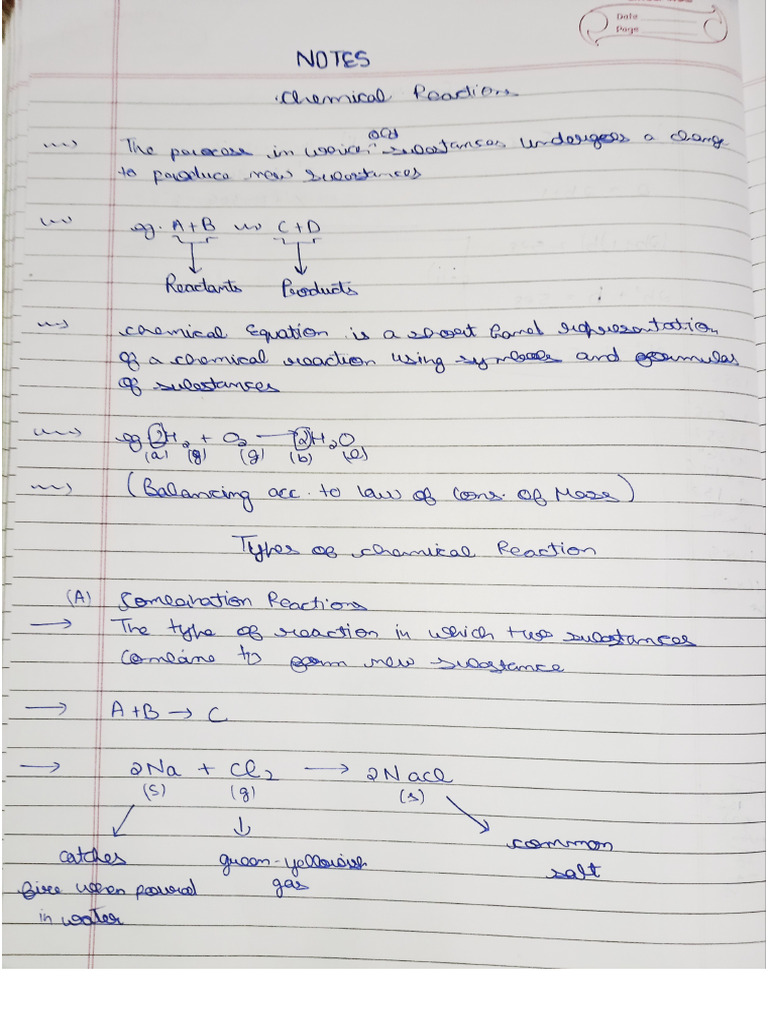 Date
Page
NOTES
Chemical Reactions
The process in which old substances undergoes a change
to produce new substances
eg. A+B → C+D
Reactants Products
Chemical Equation is a short hand representation
of a chemical reaction using symbols and formulas
of substances
eg 2H₂ + O₂ → 2H₂O
(a) (g) (g) (b) (l)
(Balancing acc. to law of Cons. of Mass)
Types of Chemical Reaction
(A) Combination Reactions
→ The type of reaction in which two substances
combine to form new substance
→ A+B → C
→ 2Na + Cl₂ → 2NaCl
(s) (g) (s)
catches green-yellowish common
fire when poured gas salt
in water